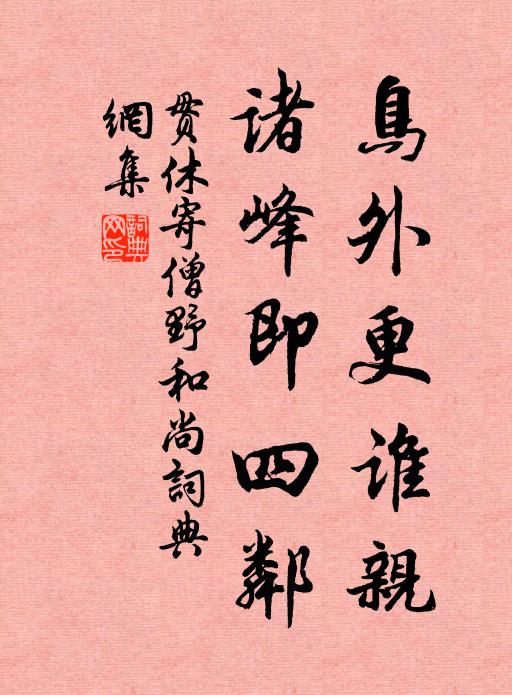 鳥外更誰親
諸峰即四鄰
貫休寄僧野和尚詞典
網集
詞典網印